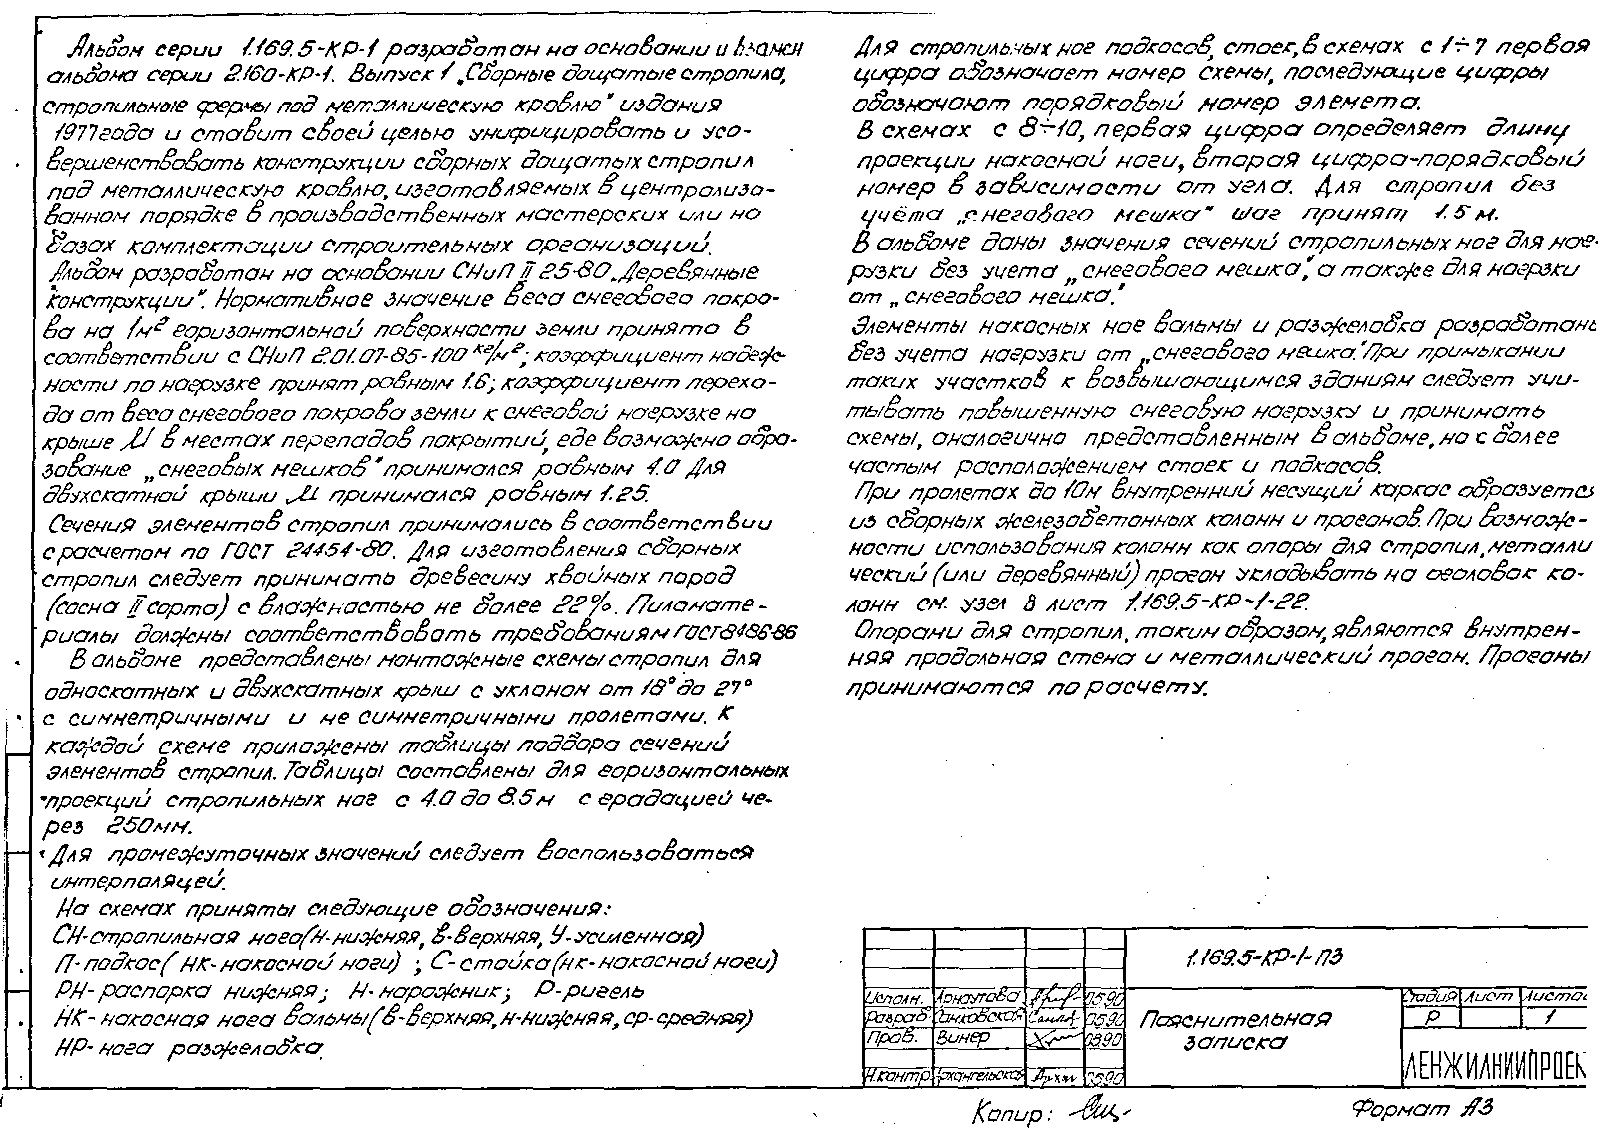 Альбом серии 1.169.5-КР-1 разработан на основании и взамен
альбома серии 2.160-КР-1. Выпуск 1 „Сборные дощатые стропила,
стропильные фермы под металлическую кровлю" издания
1977года и ставит своей целью унифицировать и усо-
вершенствовать конструкции сборных дощатых стропил
под металлическую кровлю, изготовляемых в централизо-
ванном порядке в производственных мастерских или на
базах комплектации строительных организаций.
Альбом разработан на основании СНиП II 25-80 „Деревянные
конструкции". Нормативное значение веса снегового покро-
ва на 1м² горизонтальной поверхности земли принято в
соответствии с СНиП 2.01.07-85-100 кг/м²; коэффициент надеж-
ности по нагрузке принят равным 1.6; коэффициент перехо-
да от веса снегового покрова земли к снеговой нагрузке на
крыше µ в местах перепадов покрытий, где возможно обра-
зование „снеговых мешков" принимался равным 4.0 Для
двухскатной крыши µ принимался равным 1.25.
Сечения элементов стропил принимались в соответствии
с расчетом по ГОСТ 24454-80. Для изготовления сборных
стропил следует принимать древесину хвойных пород
(сосна II сорта) с влажностью не более 22%. Пиломате-
риалы должны соответствовать требованиям ГОСТ 8486-86
В альбоме представлены монтажные схемы стропил для
односкатных и двухскатных крыш с уклоном от 18° до 27°
с симметричными и не симметричными пролетами. К
каждой схеме приложены таблицы подбора сечений
элементов стропил. Таблицы составлены для горизонтальных
проекций стропильных ног с 4.0 до 8.5м с градацией че-
рез 250мм.
Для промежуточных значений следует воспользоваться
интерполяцей.
На схемах приняты следующие обозначения:
СН-стропильная нога(Н-нижняя, в-верхняя, У-усиленная)
П-подкос( НК-накосной ноги) ; С-стойка(нк-накосной ноги)
РН-распорка нижняя; Н-нарожник; Р-ригель
НК-накосная нога вальмы(в-верхняя, н-нижняя, ср-средняя)
НР-нога разжелобка.
Для стропильных ног подкосов, стоек, в схемах с 1÷7 первая
цифра обозначает номер схемы, последующие цифры
обозначают порядковый номер элемета.
В схемах с 8÷10, первая цифра определяет длину
проекции накосной ноги, вторая цифра-порядковый
номер в зависимости от угла. Для стропил без
учёта „снегового мешка" шаг принят 1.5 м.
В альбоме даны значения сечений стропильных ног для наг-
рузки без учета „снегового мешка", а также для нагрзки
от „снегового мешка."
Элементы накосных ног вальмы и разжелобка разработаны
без учета нагрузки от „снегового мешка." При примыкании
таких участков к возвышающимся зданиям следует учи-
тывать повышенную снеговую нагрузку и принимать
схемы, аналогично представленным в альбоме, но с более
частым расположением стоек и подкосов.
При пролетах до 10м внутренний несущий каркас образуется
из сборных железобетонных колонн и прогонов. При возмож-
ности использования колонн как опоры для стропил, металли
ческий (или деревянный) прогон укладывать на оголовок ко-
лонн см. узел 8 лист 1.169.5-КР-1-22.
Опорами для стропил, таким образом, являются внутрен-
няя продольная стена и металлический прогон. Прогоны
принимаются по расчету.
1.169.5-КР-1-ПЗ
Исполн. Арнаутова 05.90
Разраб. Ганковская 05.90
Пров. Винер 05.90
Н.контр. Архангельская 05.90
Пояснительная
записка
Стадия Лист Листов
Р 1
ЛЕНЖИЛНИИПРОЕК
Копир:
Формат А3